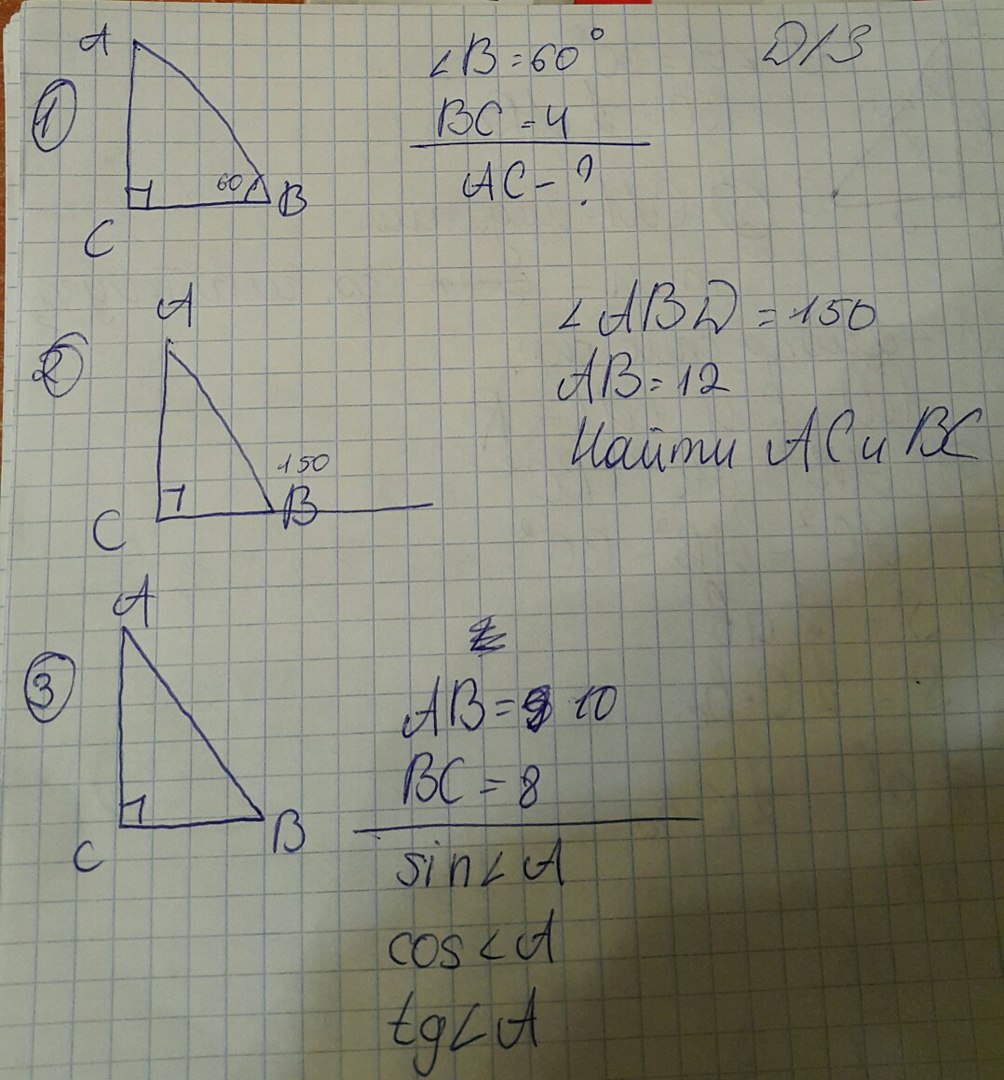 Д/З
①
A
∠B = 60°
BC = 4
AC - ?
60
B
C
②
A
∠ABD = 150
AB = 12
Найти AC и BC
150
C
B
③
A
AB = 10
BC = 8
C
B
sin∠A
cos∠A
tg∠A